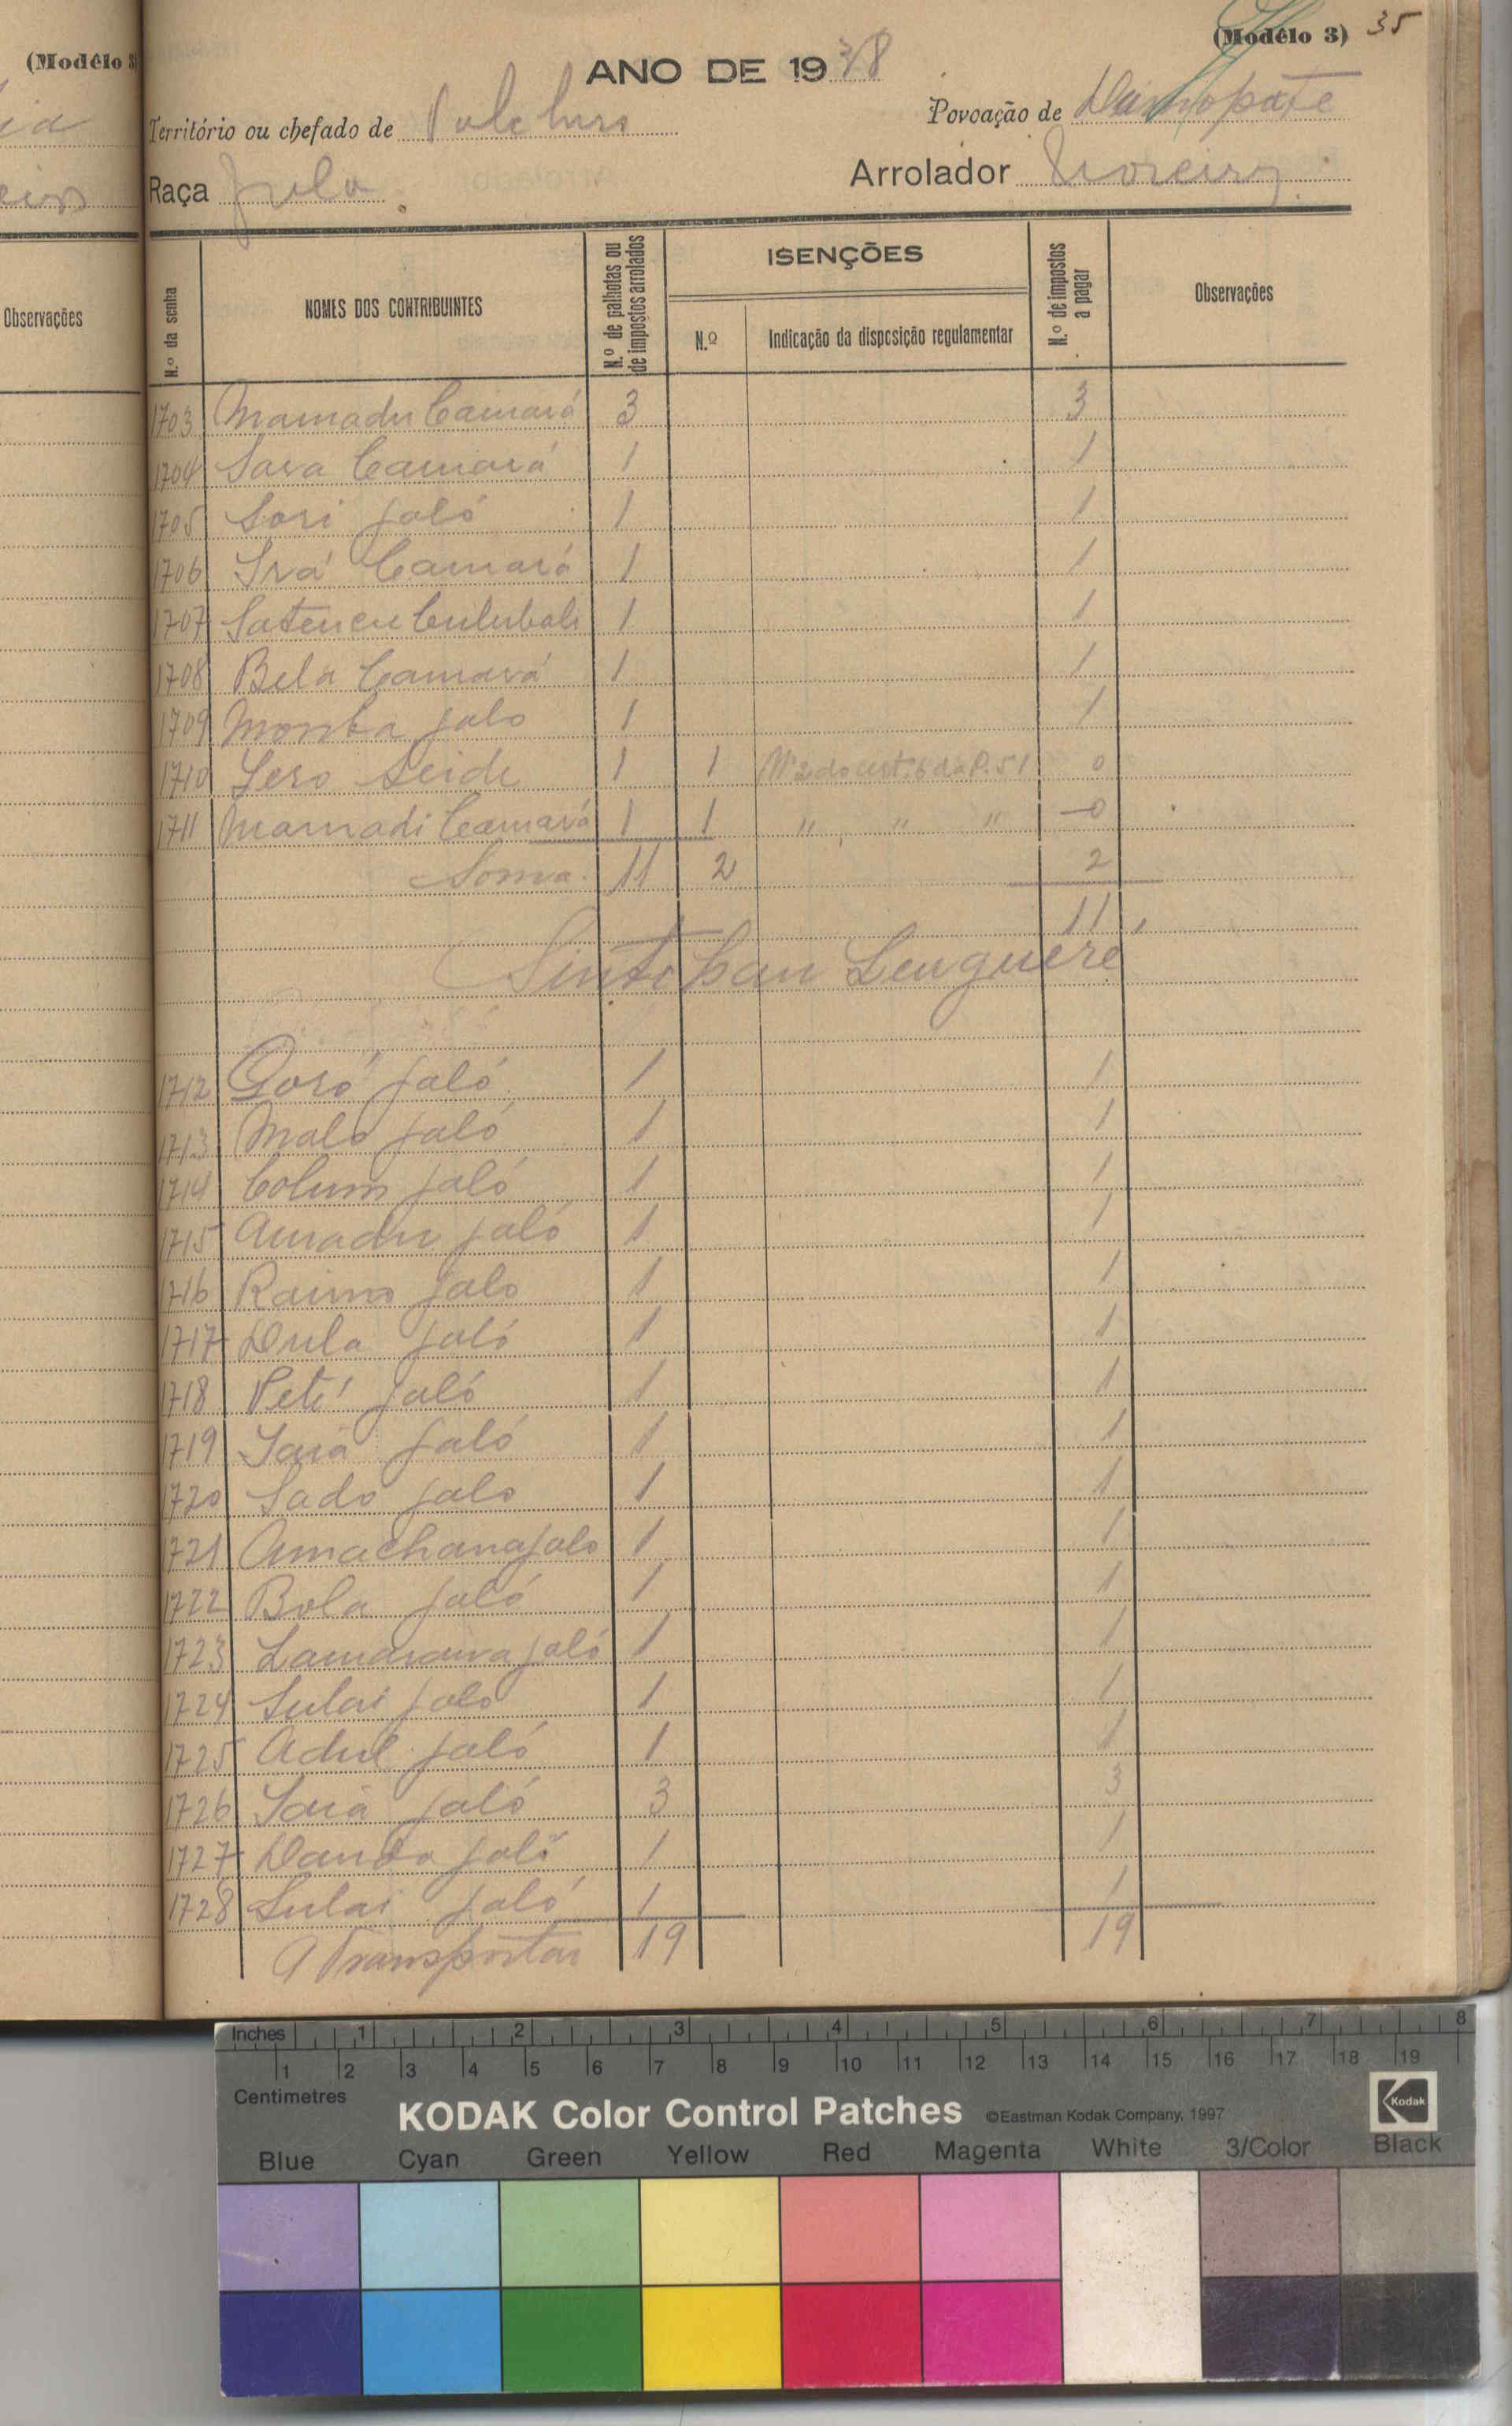 (Modêlo 3
Observações
(Modêlo 3) 35
ANO DE 1938
Território ou chefado de
Povoação de
Raça Fula
Arrolador Moreira
N.º da senha
NOMES DOS CONTRIBUINTES
N.º de palhotas ou de impostos arrolados
ISENÇÕES
N.º
Indicação da disposição regulamentar
N.º de impostos a pagar
Observações
1703 Mamadu Camará 3 3
1704 Sara Camará 1 1
1705 Sori Jaló 1 1
1706 Irá Camará 1 1
1707 Satenen Culubali 1 1
1708 Bela Camará 1 1
1709 Jalo 1 1
1710 Seide 1 1 Nº 2 do art. 6 da P. 51 0
1711 Mamadi Camará 1 1 " " " 0
Soma 11 2 2
11
Sinti Can Lenguere
1712 Goró Jaló 1 1
1713 Malo Jaló 1 1
1714 Jaló 1 1
1715 Amadu Jaló 1 1
1716 Raimo Jalo 1 1
1717 Dula Jaló 1 1
1718 Peté Jaló 1 1
1719 Iaia Jaló 1 1
1720 Sado Jalo 1 1
1721 Amachana Jalo 1 1
1722 Bola Jaló 1 1
1723 Lamarana Jaló 1 1
1724 Sulai Jalo 1 1
1725 Adul Jaló 1 1
1726 Iaia Jaló 3 3
1727 Danda Jaló 1 1
1728 Sulai Jaló 1 1
A Transportar 19 19
Inches 1 2 3 4 5 6 7 8
1 2 3 4 5 6 7 8 9 10 11 12 13 14 15 16 17 18 19
Centimetres
KODAK Color Control Patches ©Eastman Kodak Company, 1997 Kodak
Blue Cyan Green Yellow Red Magenta White 3/Color Black